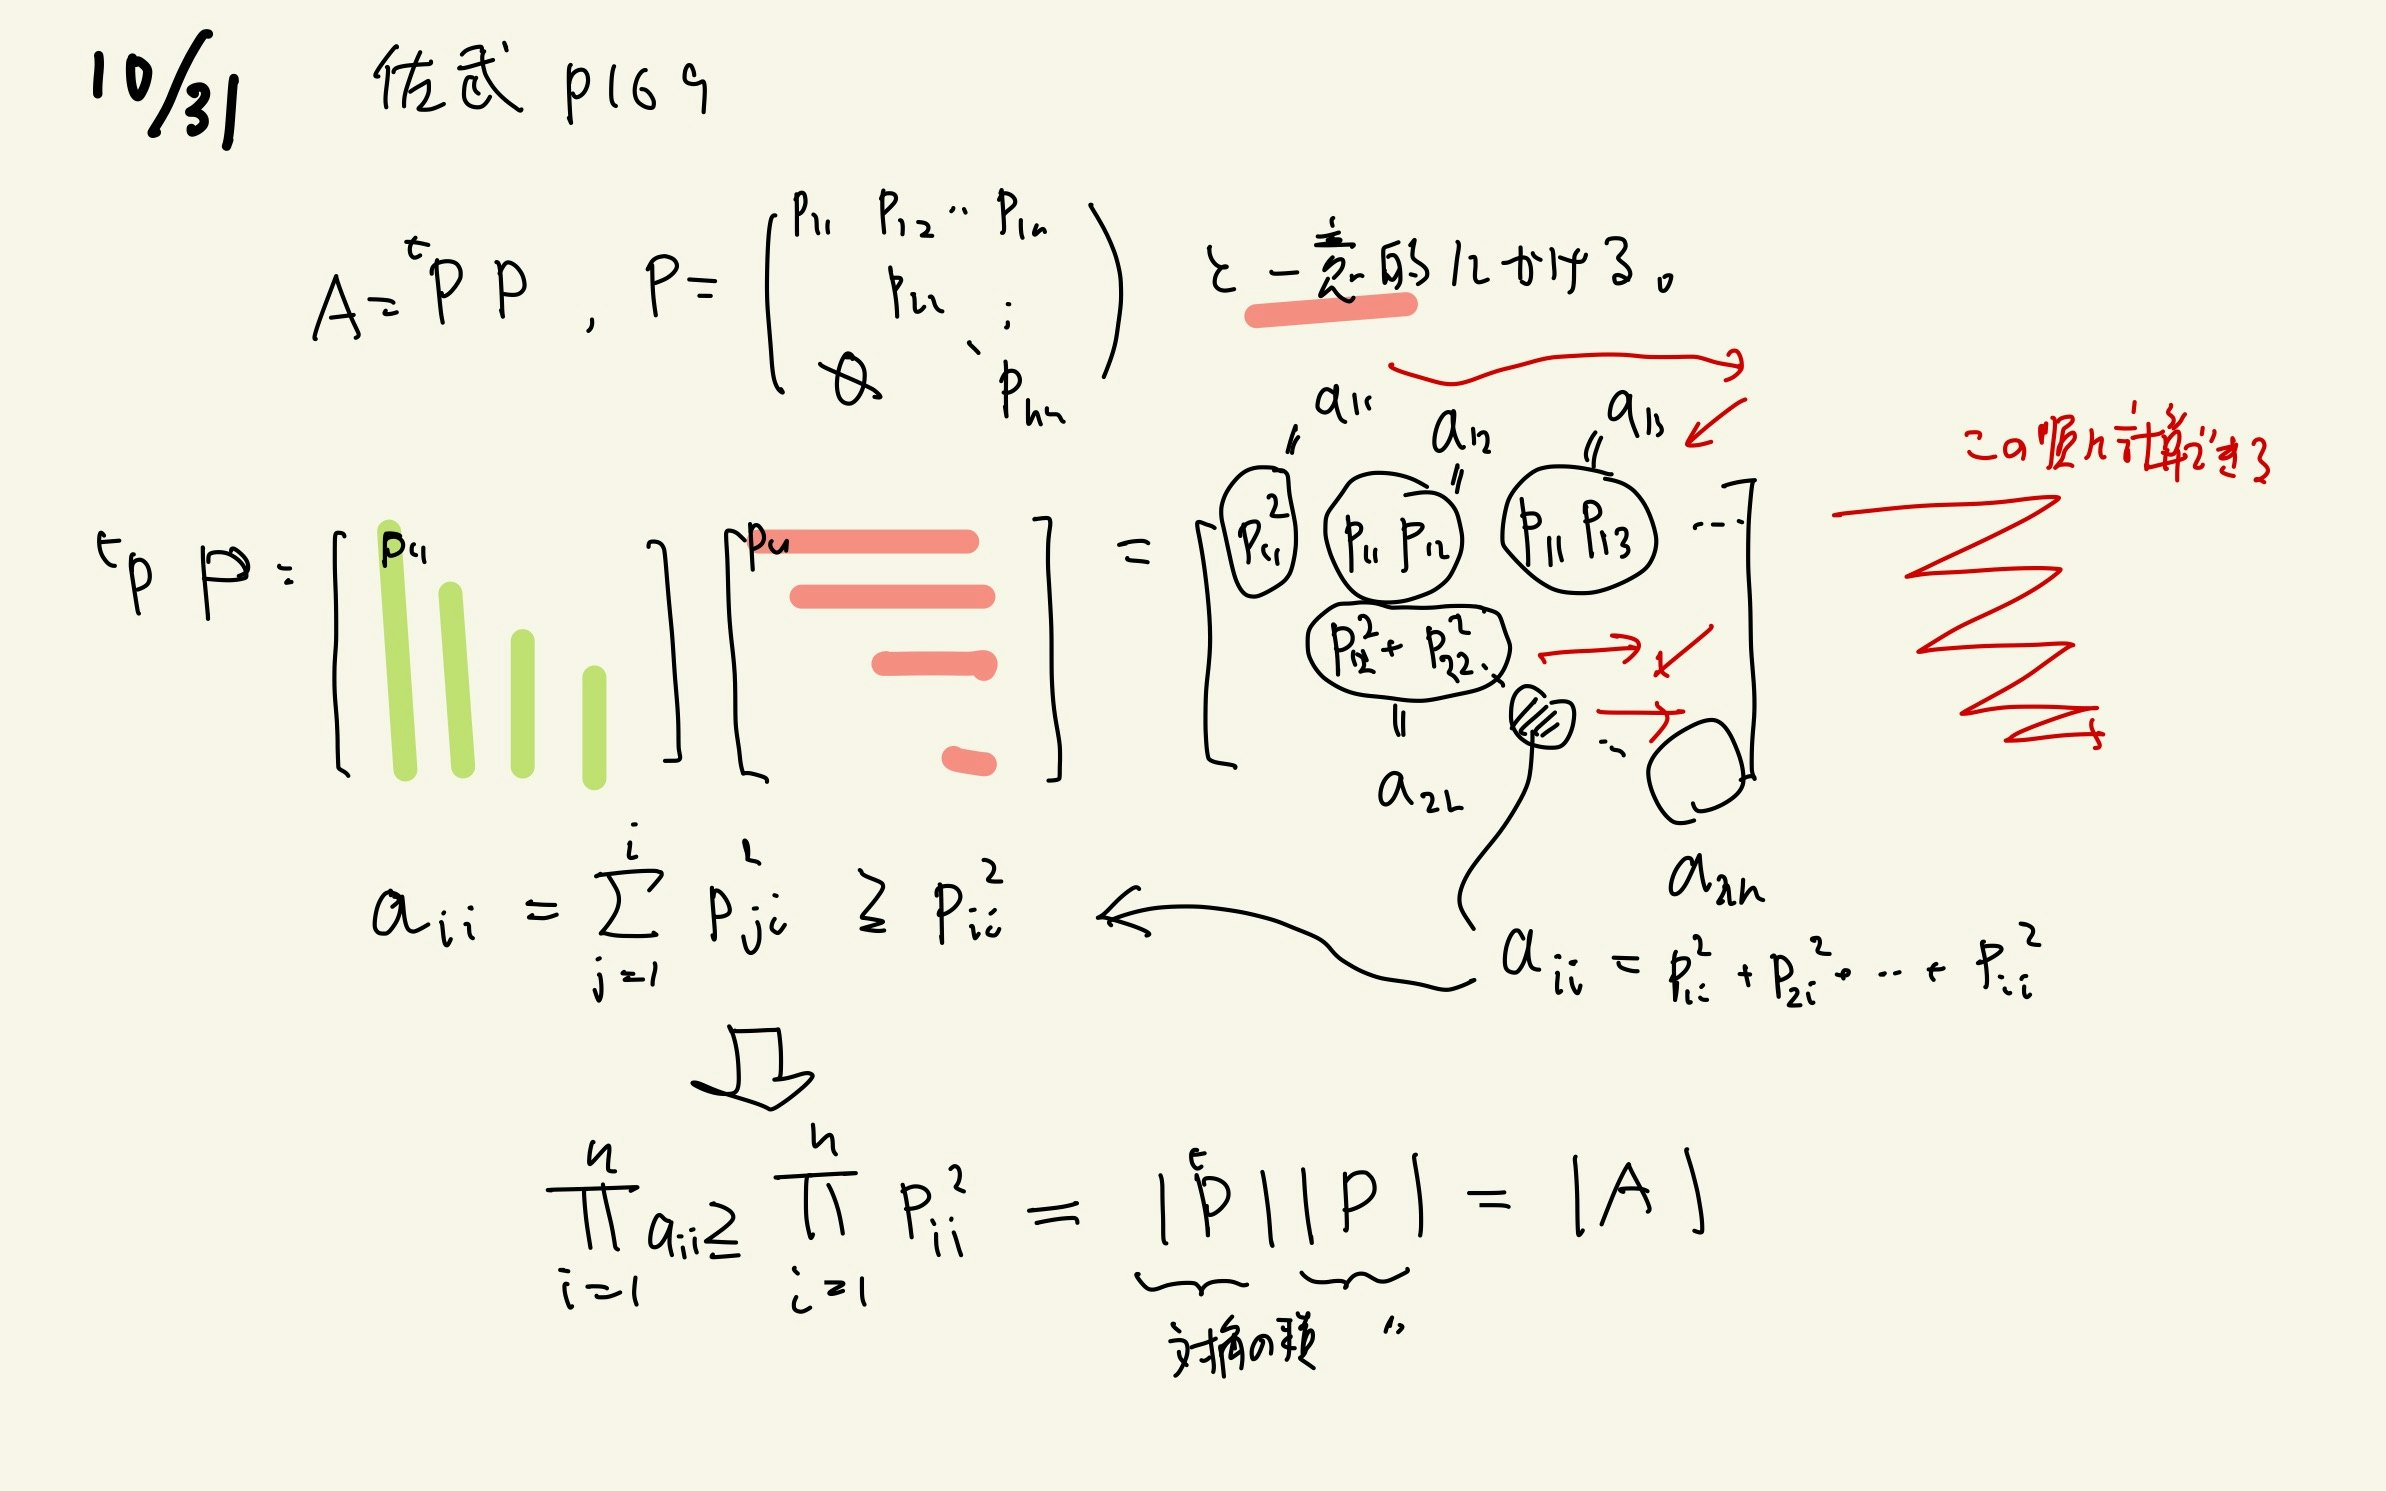 10/31 佐武 p169
A = ᵗP P , P = ( p11 p12 ‥ p1n
p22 :
0 ⋱ pnn ) と一意的にかける。
a11 a12 a13
この順に計算できる
ᵗP P = [ p11 ] [ p11 ] = [ p11² p11 p12 p11 p13 ---
p12² + p22² ⋱ ]
a22
a_ii = Σ_{j=1}^{i} p_ji² ≧ p_ii²
a_ii = p_1i² + p_2i² + ‥‥ + p_ii²
∏_{i=1}^{n} a_ii ≧ ∏_{i=1}^{n} p_ii² = |ᵗP| |P| = |A|
対角の積 〃